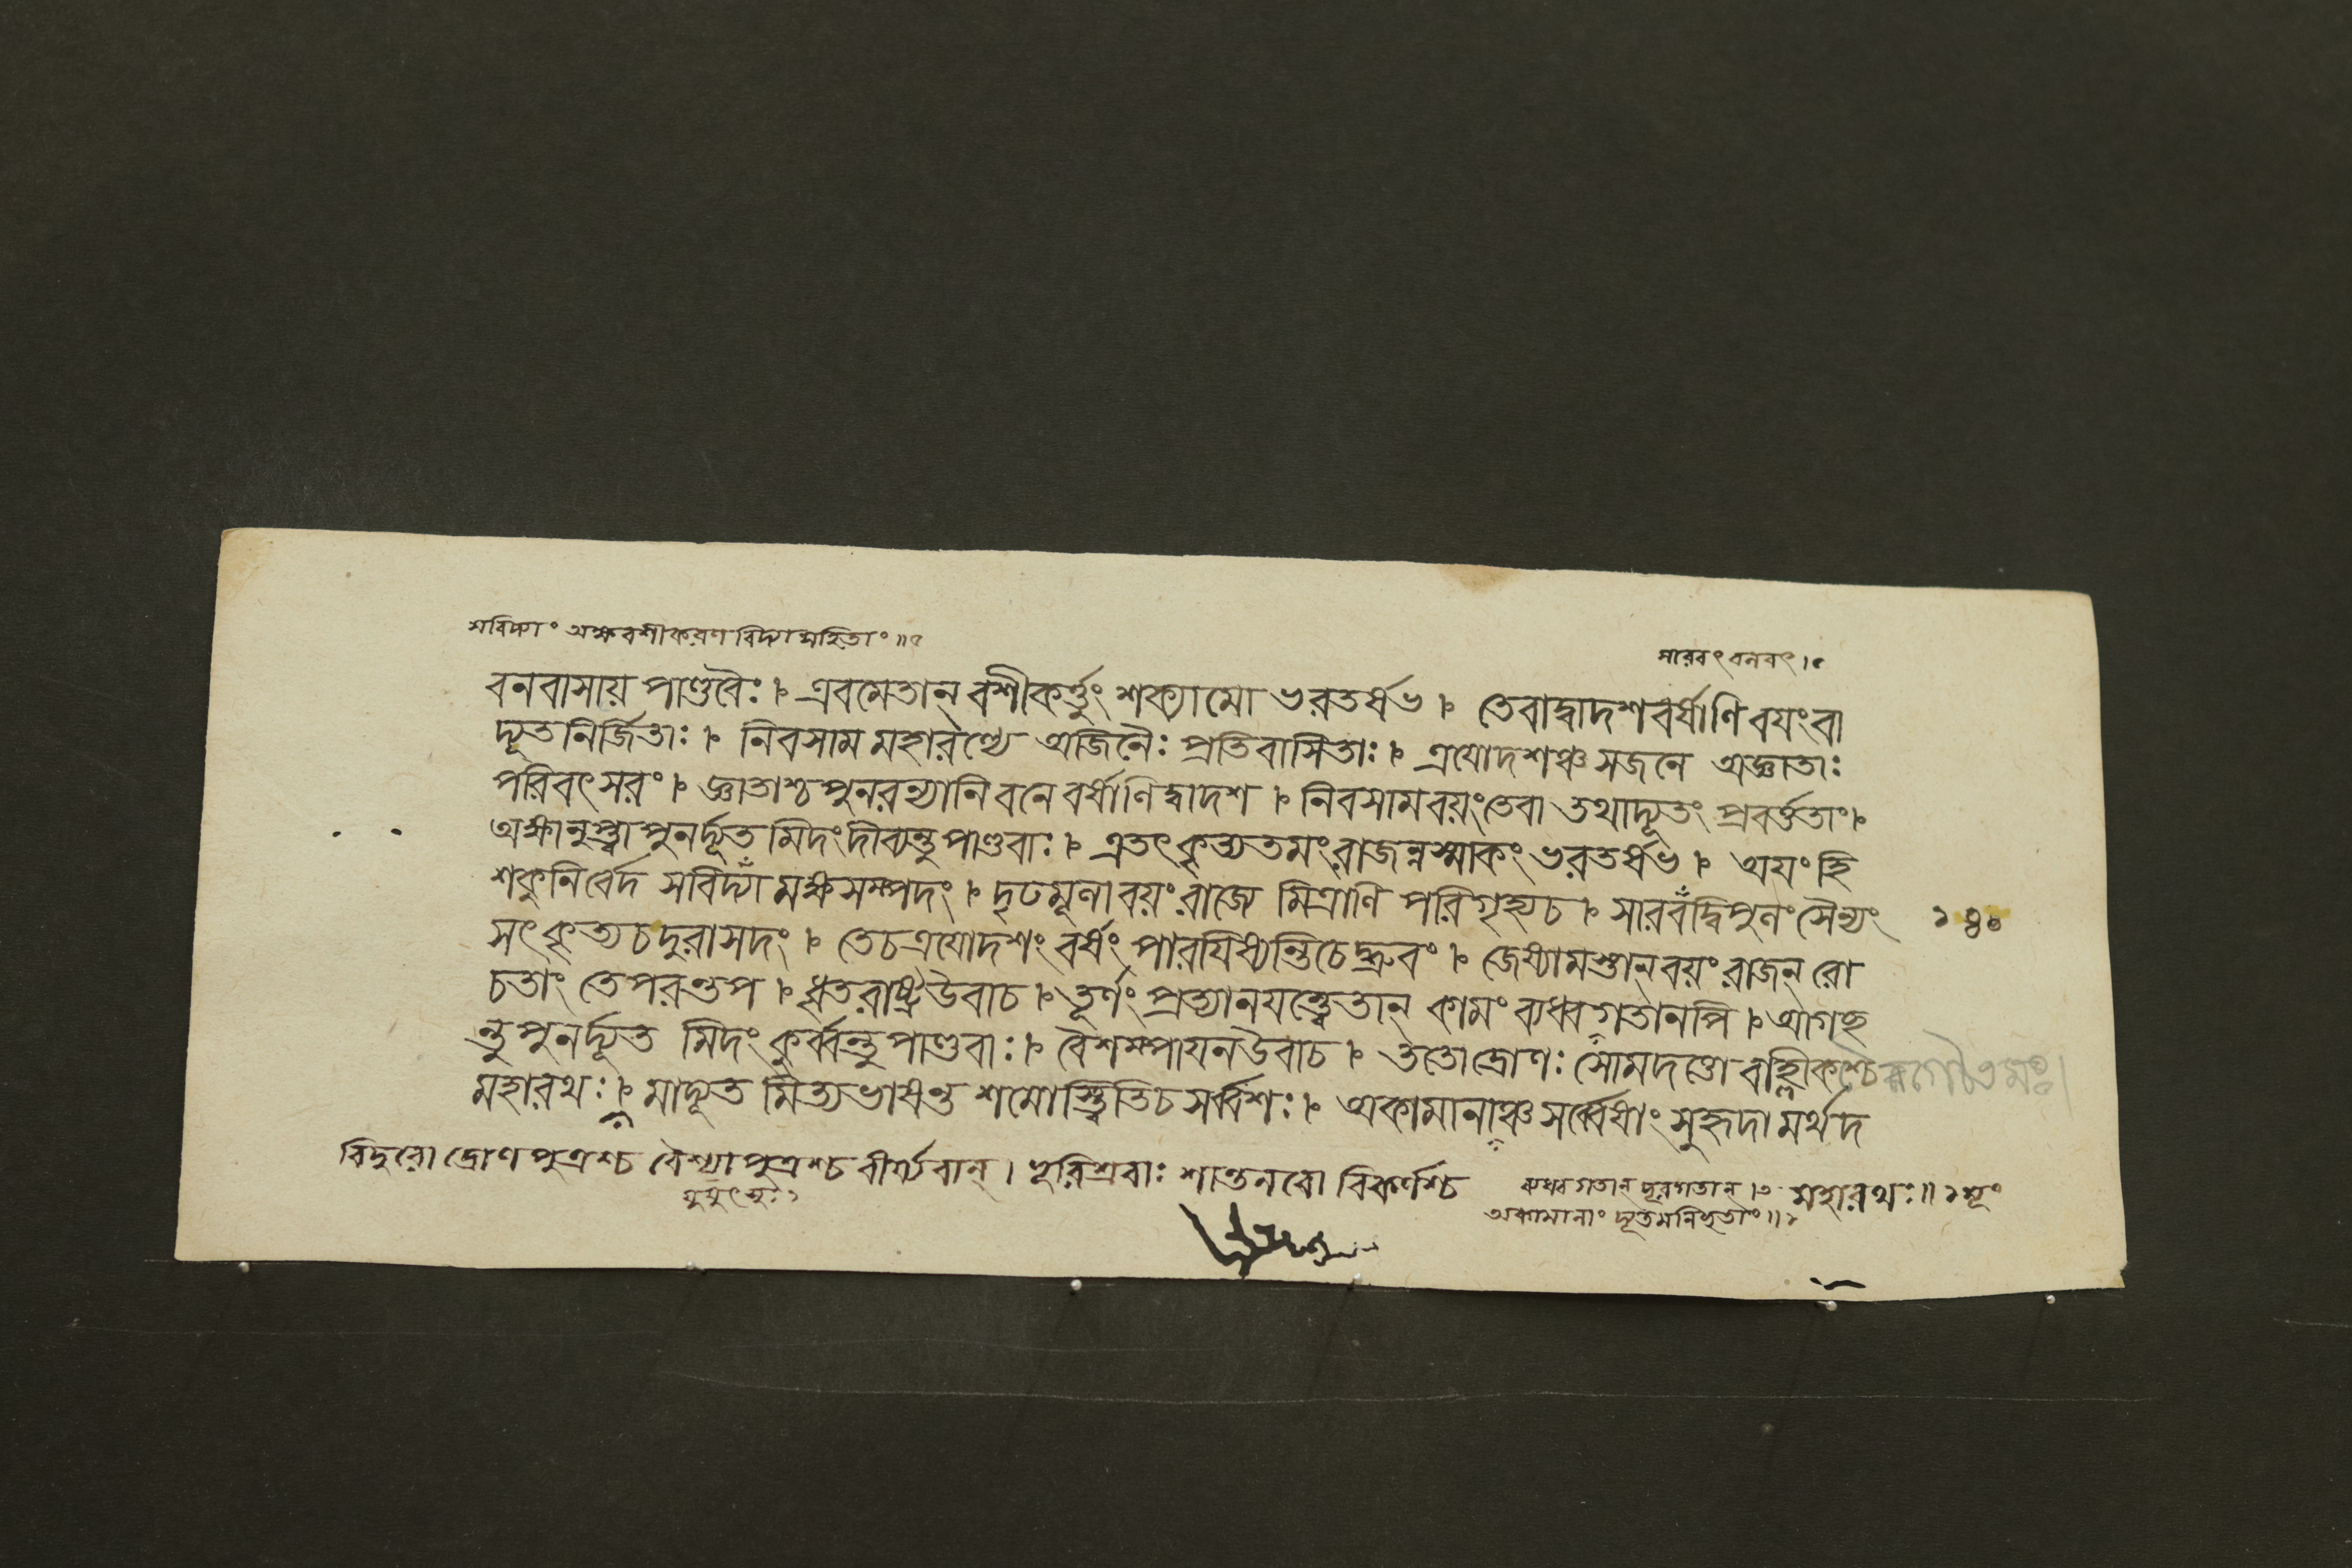 সবিদ্যাং অক্ষবশীকরণবিদ্যাসহিতাং॥৫
সারবৎ বনবৎ।৫
বনবাসায় পাণ্ডবৈঃ। এবমেতান্ বশীকর্ত্তুং শক্যামো ভরতর্ষভ। তেবাদ্বাদশবর্ষাণি বযংবা
দ্যূতনির্জিতাঃ। নিবসাম মহারণ্যে অজিনৈঃ প্রতিবাসিতাঃ। ত্রযোদশঞ্চ সজনে অজ্ঞাতাঃ
পরিবৎসরং। জ্ঞাতাশ্চ পুনরন্যানি বনে বর্ষাণিদ্বাদশ। নিবসামবয়ংতেবা তথাদ্যূতং প্রবর্ত্ততাং।
অক্ষানুপ্ত্বা পুনর্দ্যূত মিদংদীব্যন্তু পাণ্ডবাঃ। এতৎকৃত্যতমংরাজন্নস্মাকং ভরতর্ষভ। অযং হি
শকুনির্বেদ সবিদ্যাঁ মক্ষসম্পদং। দৃঢমূলাবয়ংরাজ্যে মিত্রাণি পরিগৃহ্যচ। সারবঁদ্বিপুলং সৈন্যং
১৪০
সৎকৃত্যচদুরাসদং। তেচত্রযোদশং বর্ষং পারযিষ্যন্তিচেদ্ধ্রুবং। জেষ্যামস্তান্বয়ং রাজন্ রো
চতাং তেপরন্তপ। ধৃতরাষ্ট্রউবাচ। তূর্ণং প্রত্যানযস্ত্বেতান্ কামং ব্যধ্বগতানপি। আগচ্ছ
ন্তু পুনর্দ্যূত মিদং কুর্ব্বন্তু পাণ্ডবাঃ। বৈশম্পাযনউবাচ। ততোদ্রোণঃ সোমদত্তো বাহ্লীকশ্চৈবগৌতমঃ।
মহারথঃ। মাদ্যূত মিত্যভাষন্ত শমোস্ত্বিতিচ সর্ব্বশঃ। অকামানাঞ্চ সর্ব্বেষাং সুহৃদামর্থদ
বিদুরো দ্রোণপুত্রশ্চ বৈশ্যাপুত্রশ্চ বীর্য্যবান্। ভূরিশ্রবাঃ শান্তনবো বিকর্ণশ্চ মহারথঃ॥
যুযুৎসুঃ১
ব্যধ্বগতান্ দূরগতান্।৩
অকামানাং দ্যূতমনিচ্ছতাং॥১